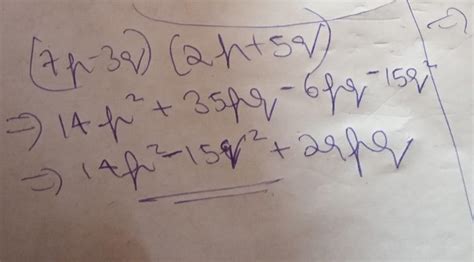 ⇒
(7p-3q) (2p+5q)
⇒ 14p² + 35pq - 6pq - 15q²
⇒ 14p² - 15q² + 29pq